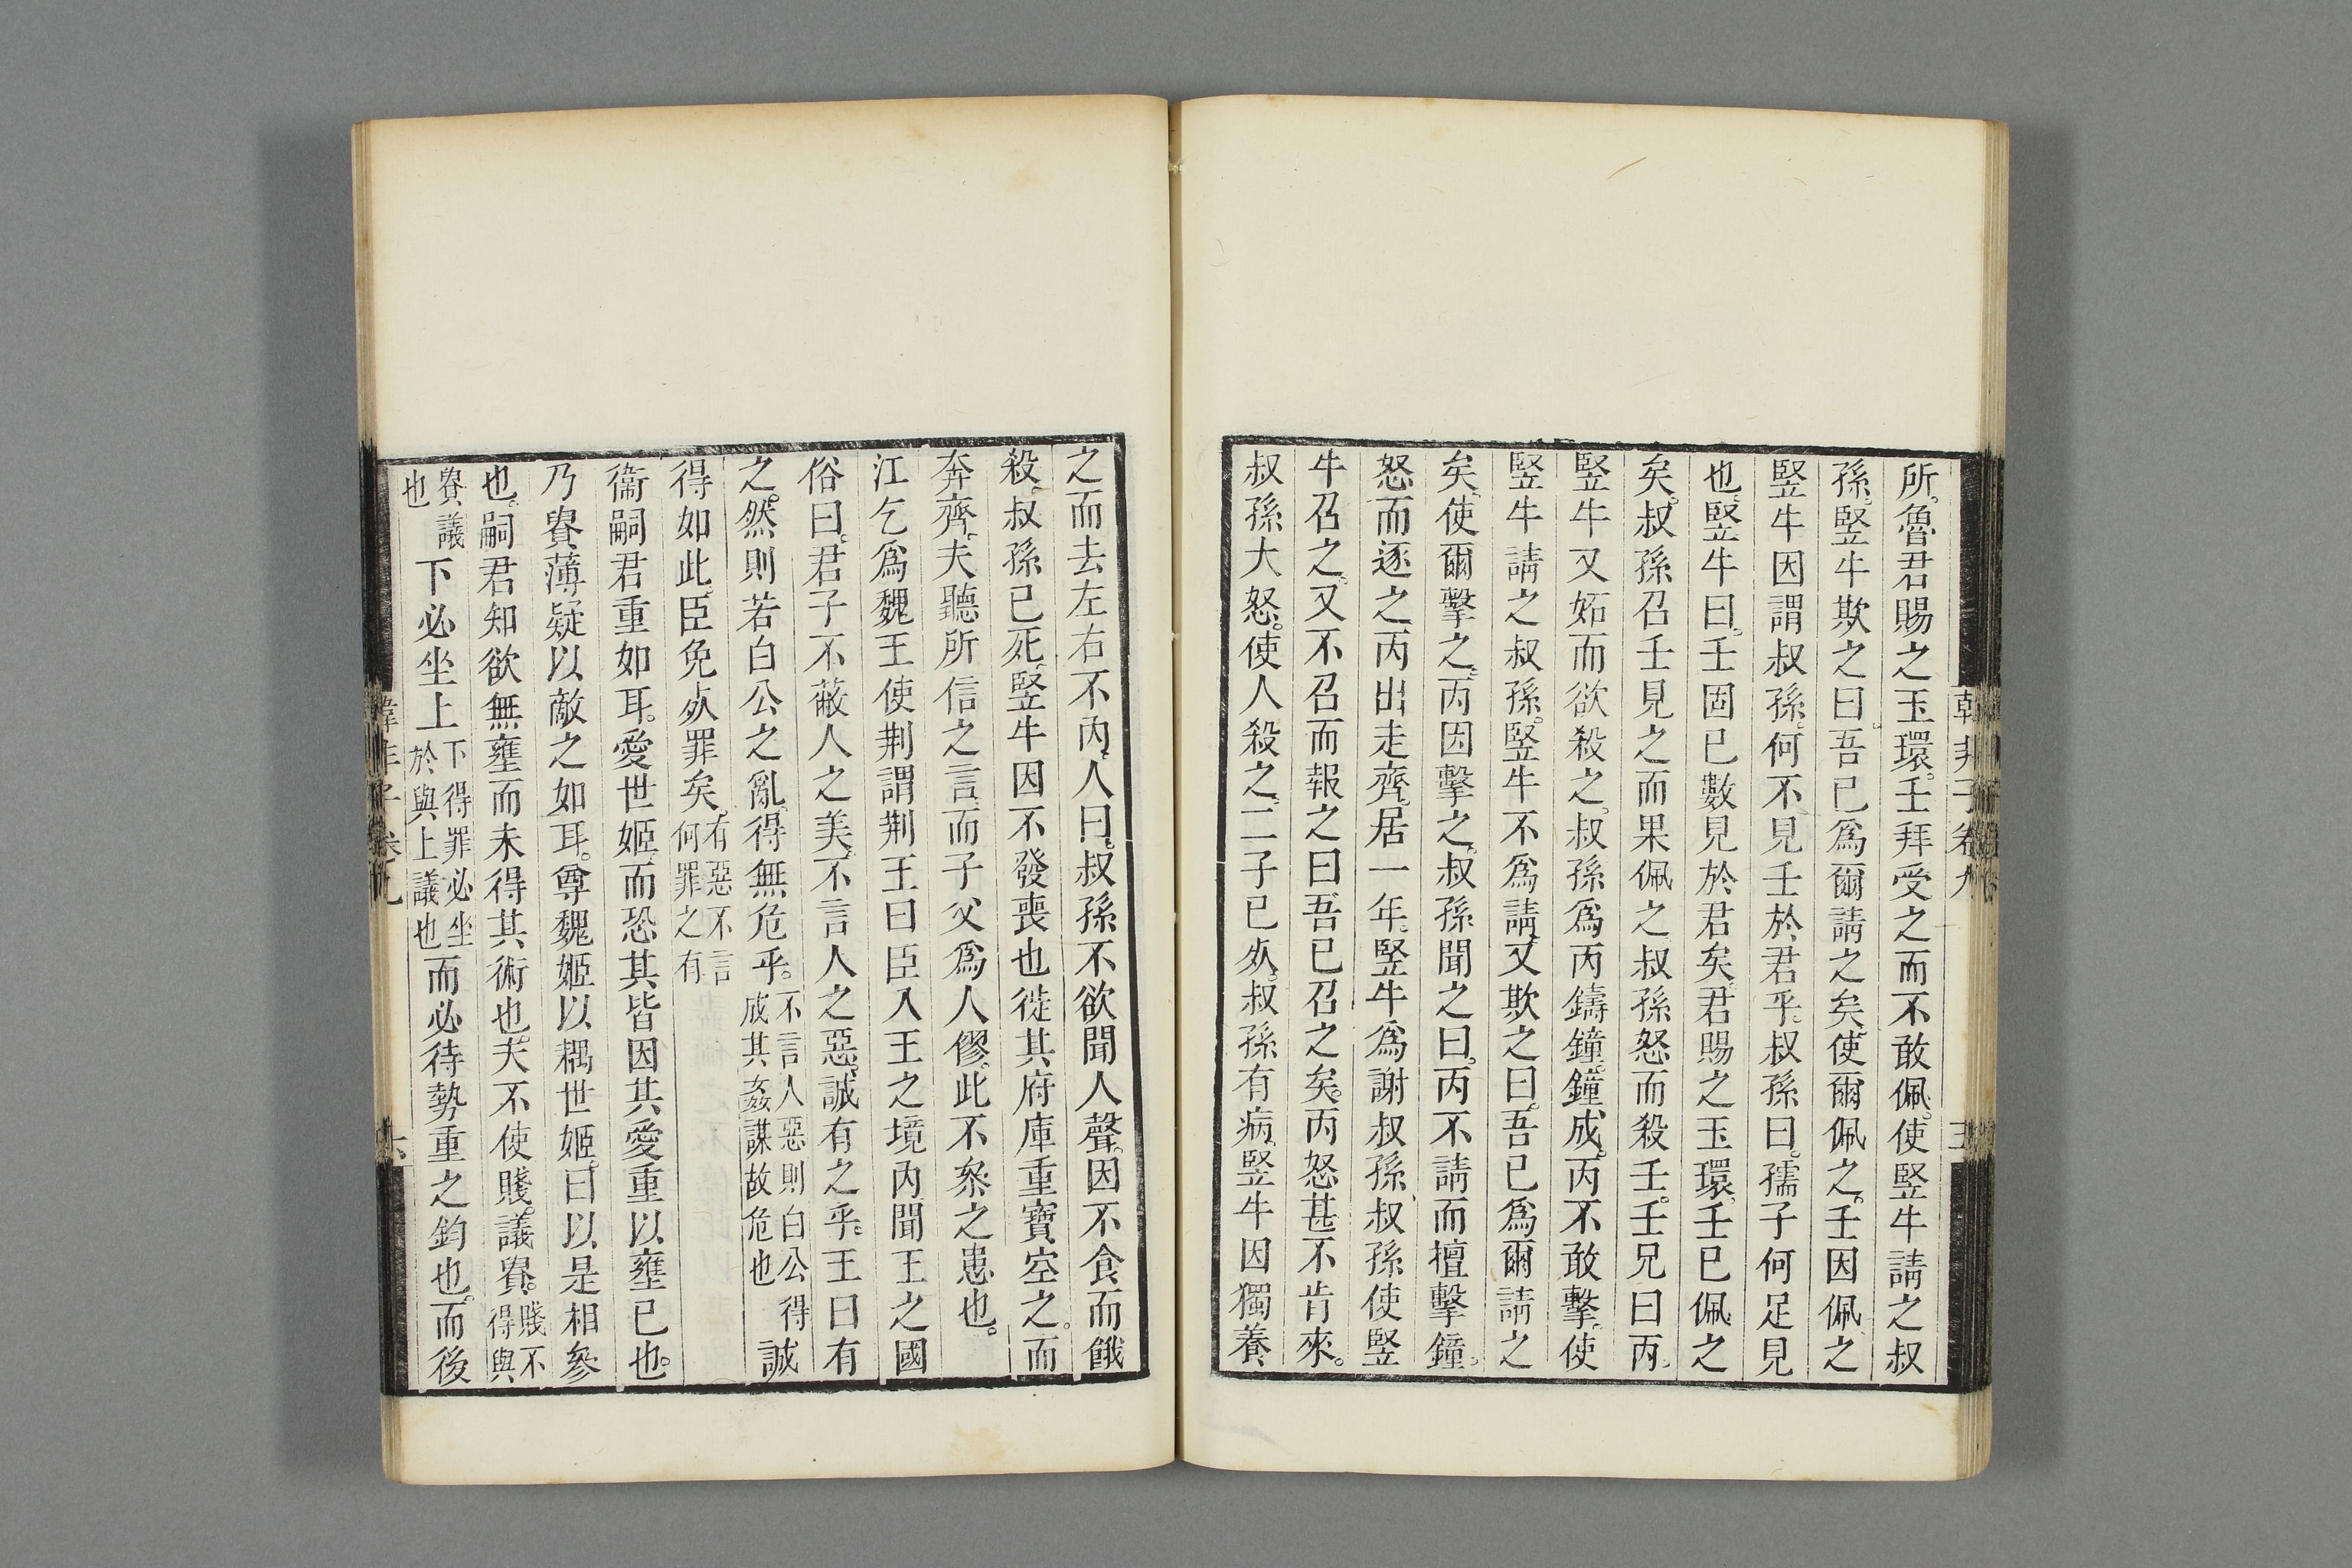 所。魯君賜之玉環。壬拜受之而不敢佩。使豎牛請之叔
孫。豎牛欺之曰。吾已爲爾請之矣。使爾佩之。壬因佩之
豎牛因謂叔孫。何不見壬於君乎。叔孫曰。孺子何足見
也。豎牛曰。壬固已數見於君矣。君賜之玉環。壬已佩之
矣。叔孫召壬見之而果佩之。叔孫怒而殺壬。壬兄曰丙。
豎牛又妬而欲殺之。叔孫爲丙鑄鐘。鐘成。丙不敢擊。使
豎牛請之叔孫。豎牛不爲請。又欺之曰。吾已爲爾請之
矣。使爾擊之。丙因擊之。叔孫聞之曰。丙不請而擅擊鐘。
怒而逐之。丙出走齊。居一年。豎牛爲謝叔孫。叔孫使豎
牛召之。又不召而報之曰。吾已召之矣。丙怒甚不肯來。
叔孫大怒。使人殺之。二子已死。叔孫有病。豎牛因獨養
韓非子卷九
五
之而去左右。不內人曰。叔孫不欲聞人聲。因不食而餓
殺。叔孫已死。豎牛因不發喪也。徙其府庫重寶空之。而
奔齊。夫聽所信之言。而子父爲人僇。此不叅之患也。
江乞爲魏王使荆。謂荆王曰。臣入王之境內。聞王之國
俗曰。君子不蔽人之美。不言人之惡。誠有之乎。王曰有
之。然則若白公之亂。得無危乎。不言人惡則白公得成其姦謀故危也誠
得如此。臣免死罪矣。有惡不言何罪之有
衞嗣君重如耳。愛世姬。而恐其皆因其愛重以壅己也。
乃貴薄疑以敵之如耳。尊魏姬以耦世姬。曰以是相參
也。嗣君知欲無壅而未得其術也。夫不使賤議貴。賤不得與
貴議也下必坐上下得罪必坐於與上議也而必待勢重之鈞也。而後
韓非子卷九
六